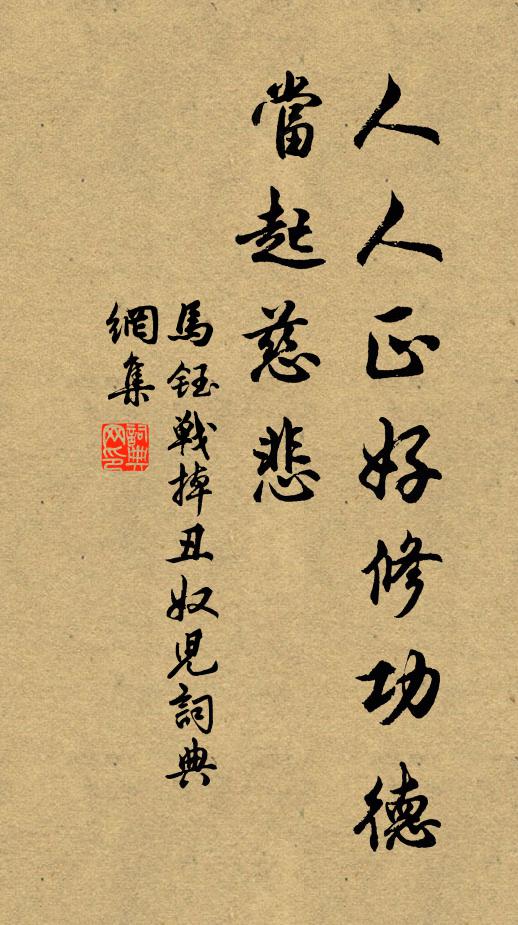 人人正好修功德
當起慈悲
馬鈺戰掉丑奴兒詞典
網集
詞典網印